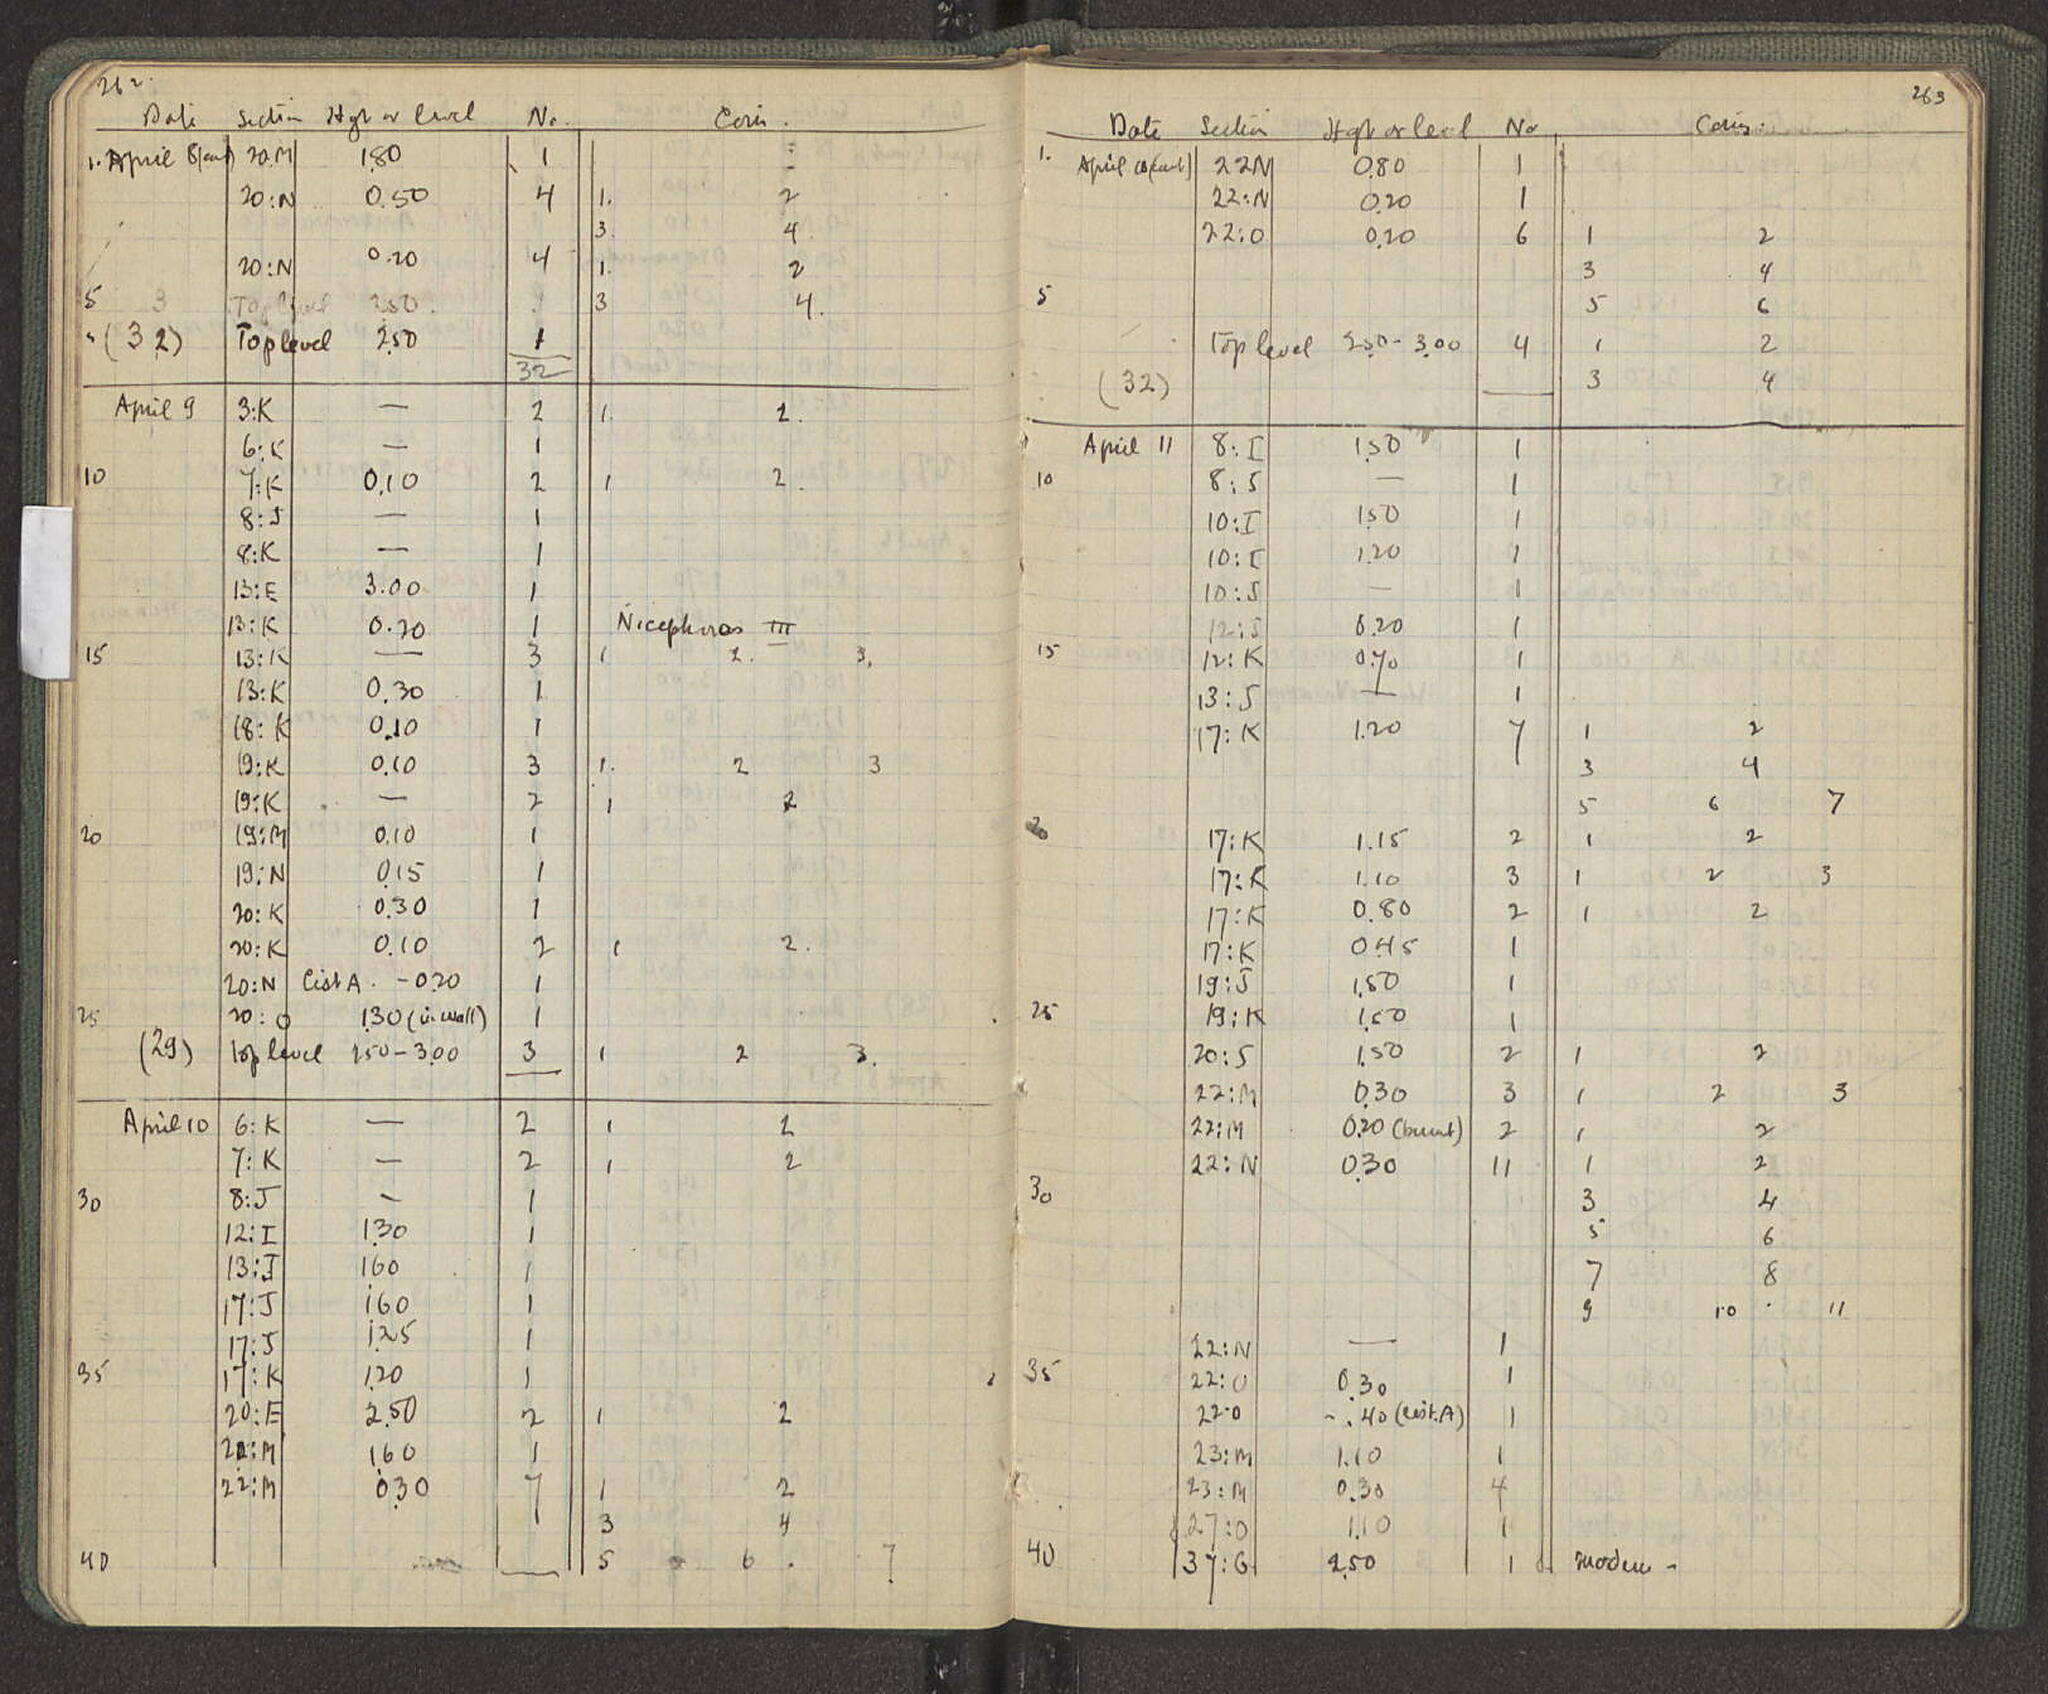 262.
Date Section Hgt or level No. Coin.
1. April 8 (cont) 20.M 1.80 1 -
20:N 0.50 4 1. 2
3. 4.
20:N 0.20 4 1. 2
5 3 Top level 2.50 3 4.
(32) Top level 2.50 1
32
April 9 3:K — 2 1. 2.
6:K — 1
10 7:K 0.10 2 1 2.
8:J — 1
8:K — 1
13:E 3.00 1
13:K 0.20 1 Nicephoros III
15 13:K — 3 1 2. 3.
13:K 0.30 1
18:K 0.10 1
19:K 0.10 3 1. 2 3
19:K — 2 1 2
20 19:M 0.10 1
19:N 0.15 1
20:K 0.30 1
20:K 0.10 2 1 2.
20:N Cist A. -0.20 1
25 20:O 1.30 (in wall) 1
(29) Top level 2.50-3.00 3 1 2 3.
April 10 6:K — 2 1 2
7:K — 2 1 2
30 8:J — 1
12:I 1.30 1
13:J 1.60 1
17:J 1.60 1
17:J 1.25 1
35 17:K 1.20 1
20:E 2.50 2 1 2
22:M 1.60 1
22:M 0.30 7 1 2
3 4
40 5 6. 7
263
Date Section Hgt or level No. Coins.
1. April 10 (cont) 22N 0.80 1
22:N 0.20 1
22:O 0.20 6 1 2
3 4
5 5 6
Top level 2.50-3.00 4 1 2
(32) 3 4
April 11 8:I 1.50 1
10 8:J — 1
10:I 1.50 1
10:I 1.20 1
10:J — 1
12:J 0.20 1
15 12:K 0.70 1
13:J — 1
17:K 1.20 7 1 2
3 4
5 6 7
20 17:K 1.15 2 1 2
17:K 1.10 3 1 2 3
17:K 0.80 2 1 2
17:K 0.45 1
19:J 1.50 1
25 19:K 1.50 1
20:J 1.50 2 1 2
22:M 0.30 3 1 2 3
22:M 0.20 (burnt) 2 1 2
22:N 0.30 11 1 2
30 3 4
5 6
7 8
9 10 11
22:N — 1
35 22:O 0.30 1
22:O -.40 (cist.A) 1
23:M 1.10 1
23:M 0.30 4
27:O 1.10 1
40 37:G 2.50 1 modern -